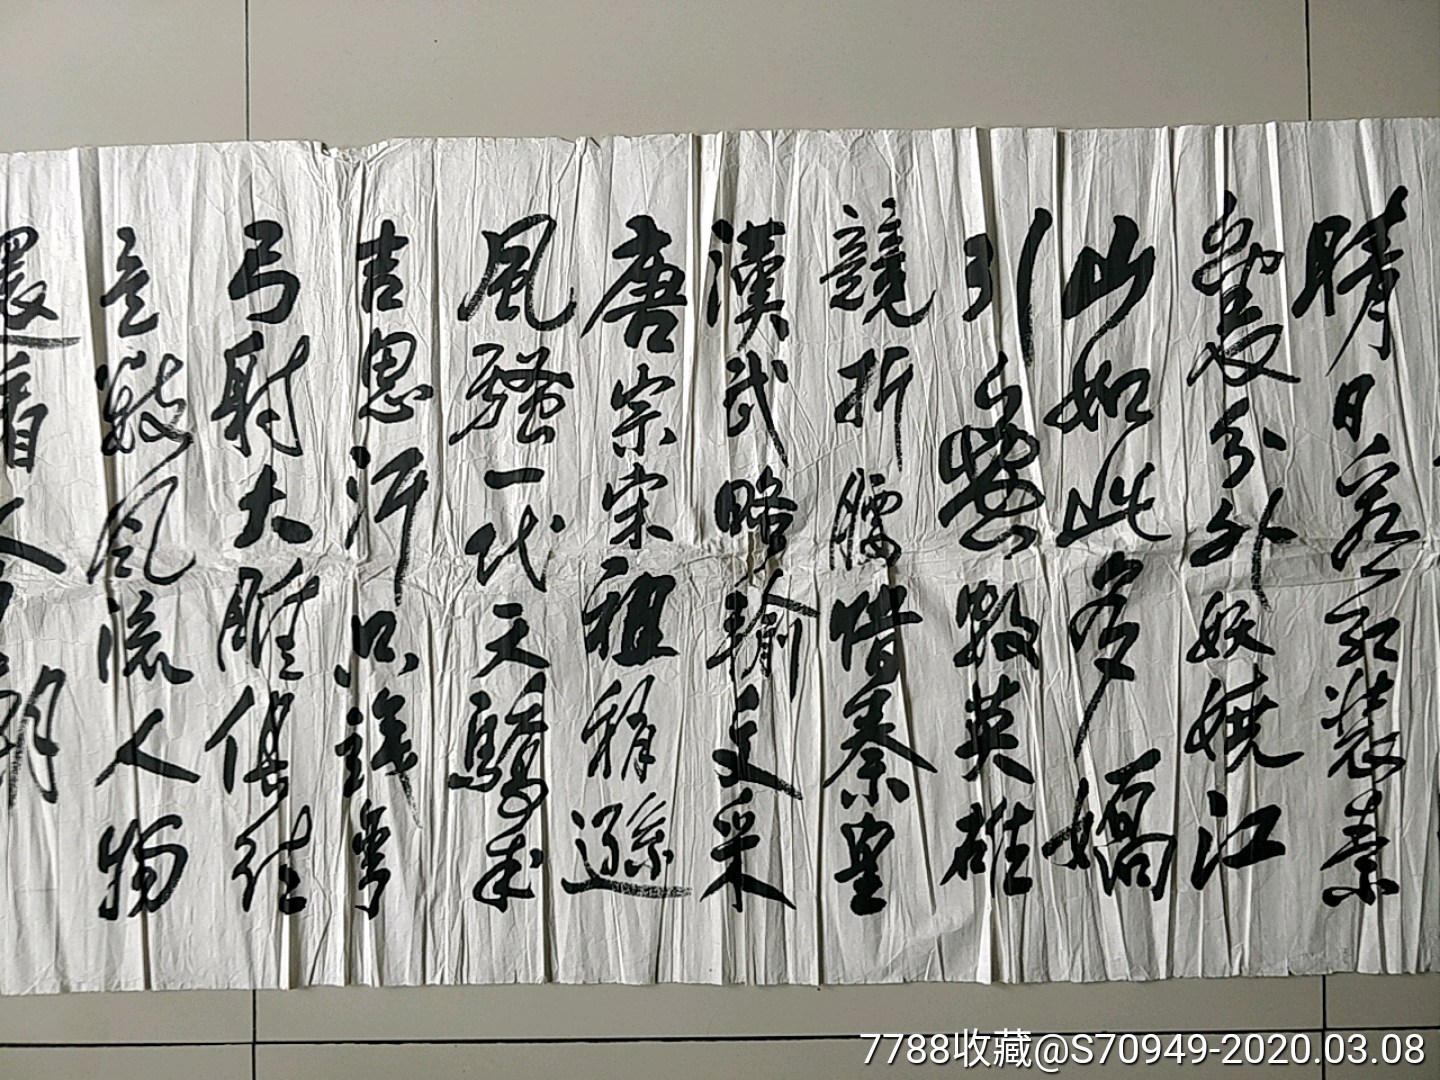 晴日看紅装素
裹分外妖嬈江
山如此多嬌
引無數英雄
競折腰惜秦皇
漢武略输文采
唐宗宋祖稍遜
風騷一代天驕成
吉思汗只識彎
弓射大雕俱往
矣數風流人物
還看今朝
7788收藏@S70949-2020.03.08